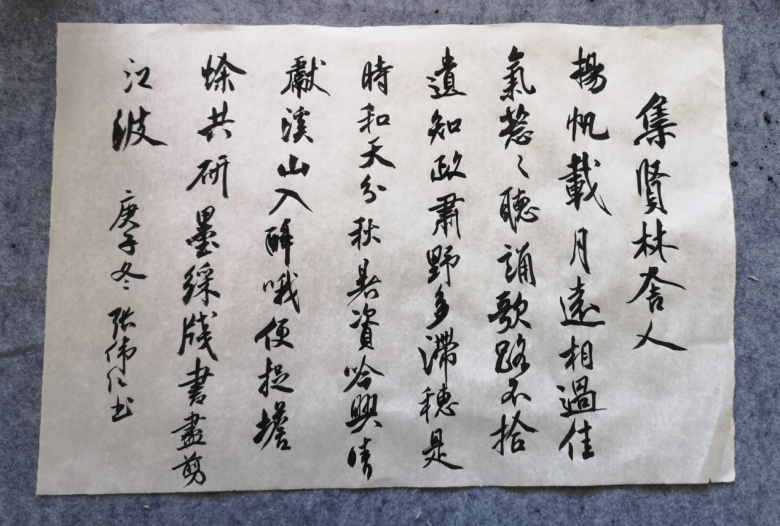 集賢林舍人
揚帆載月遠相過佳
氣葱〻聽誦歌路不拾
遺知政肅野多滯穗是
時和天分秋暑資吟興晴
獻溪山入醉哦便捉蟾
蜍共研墨綵牋書盡剪
江波 庚子冬 张伟仁书